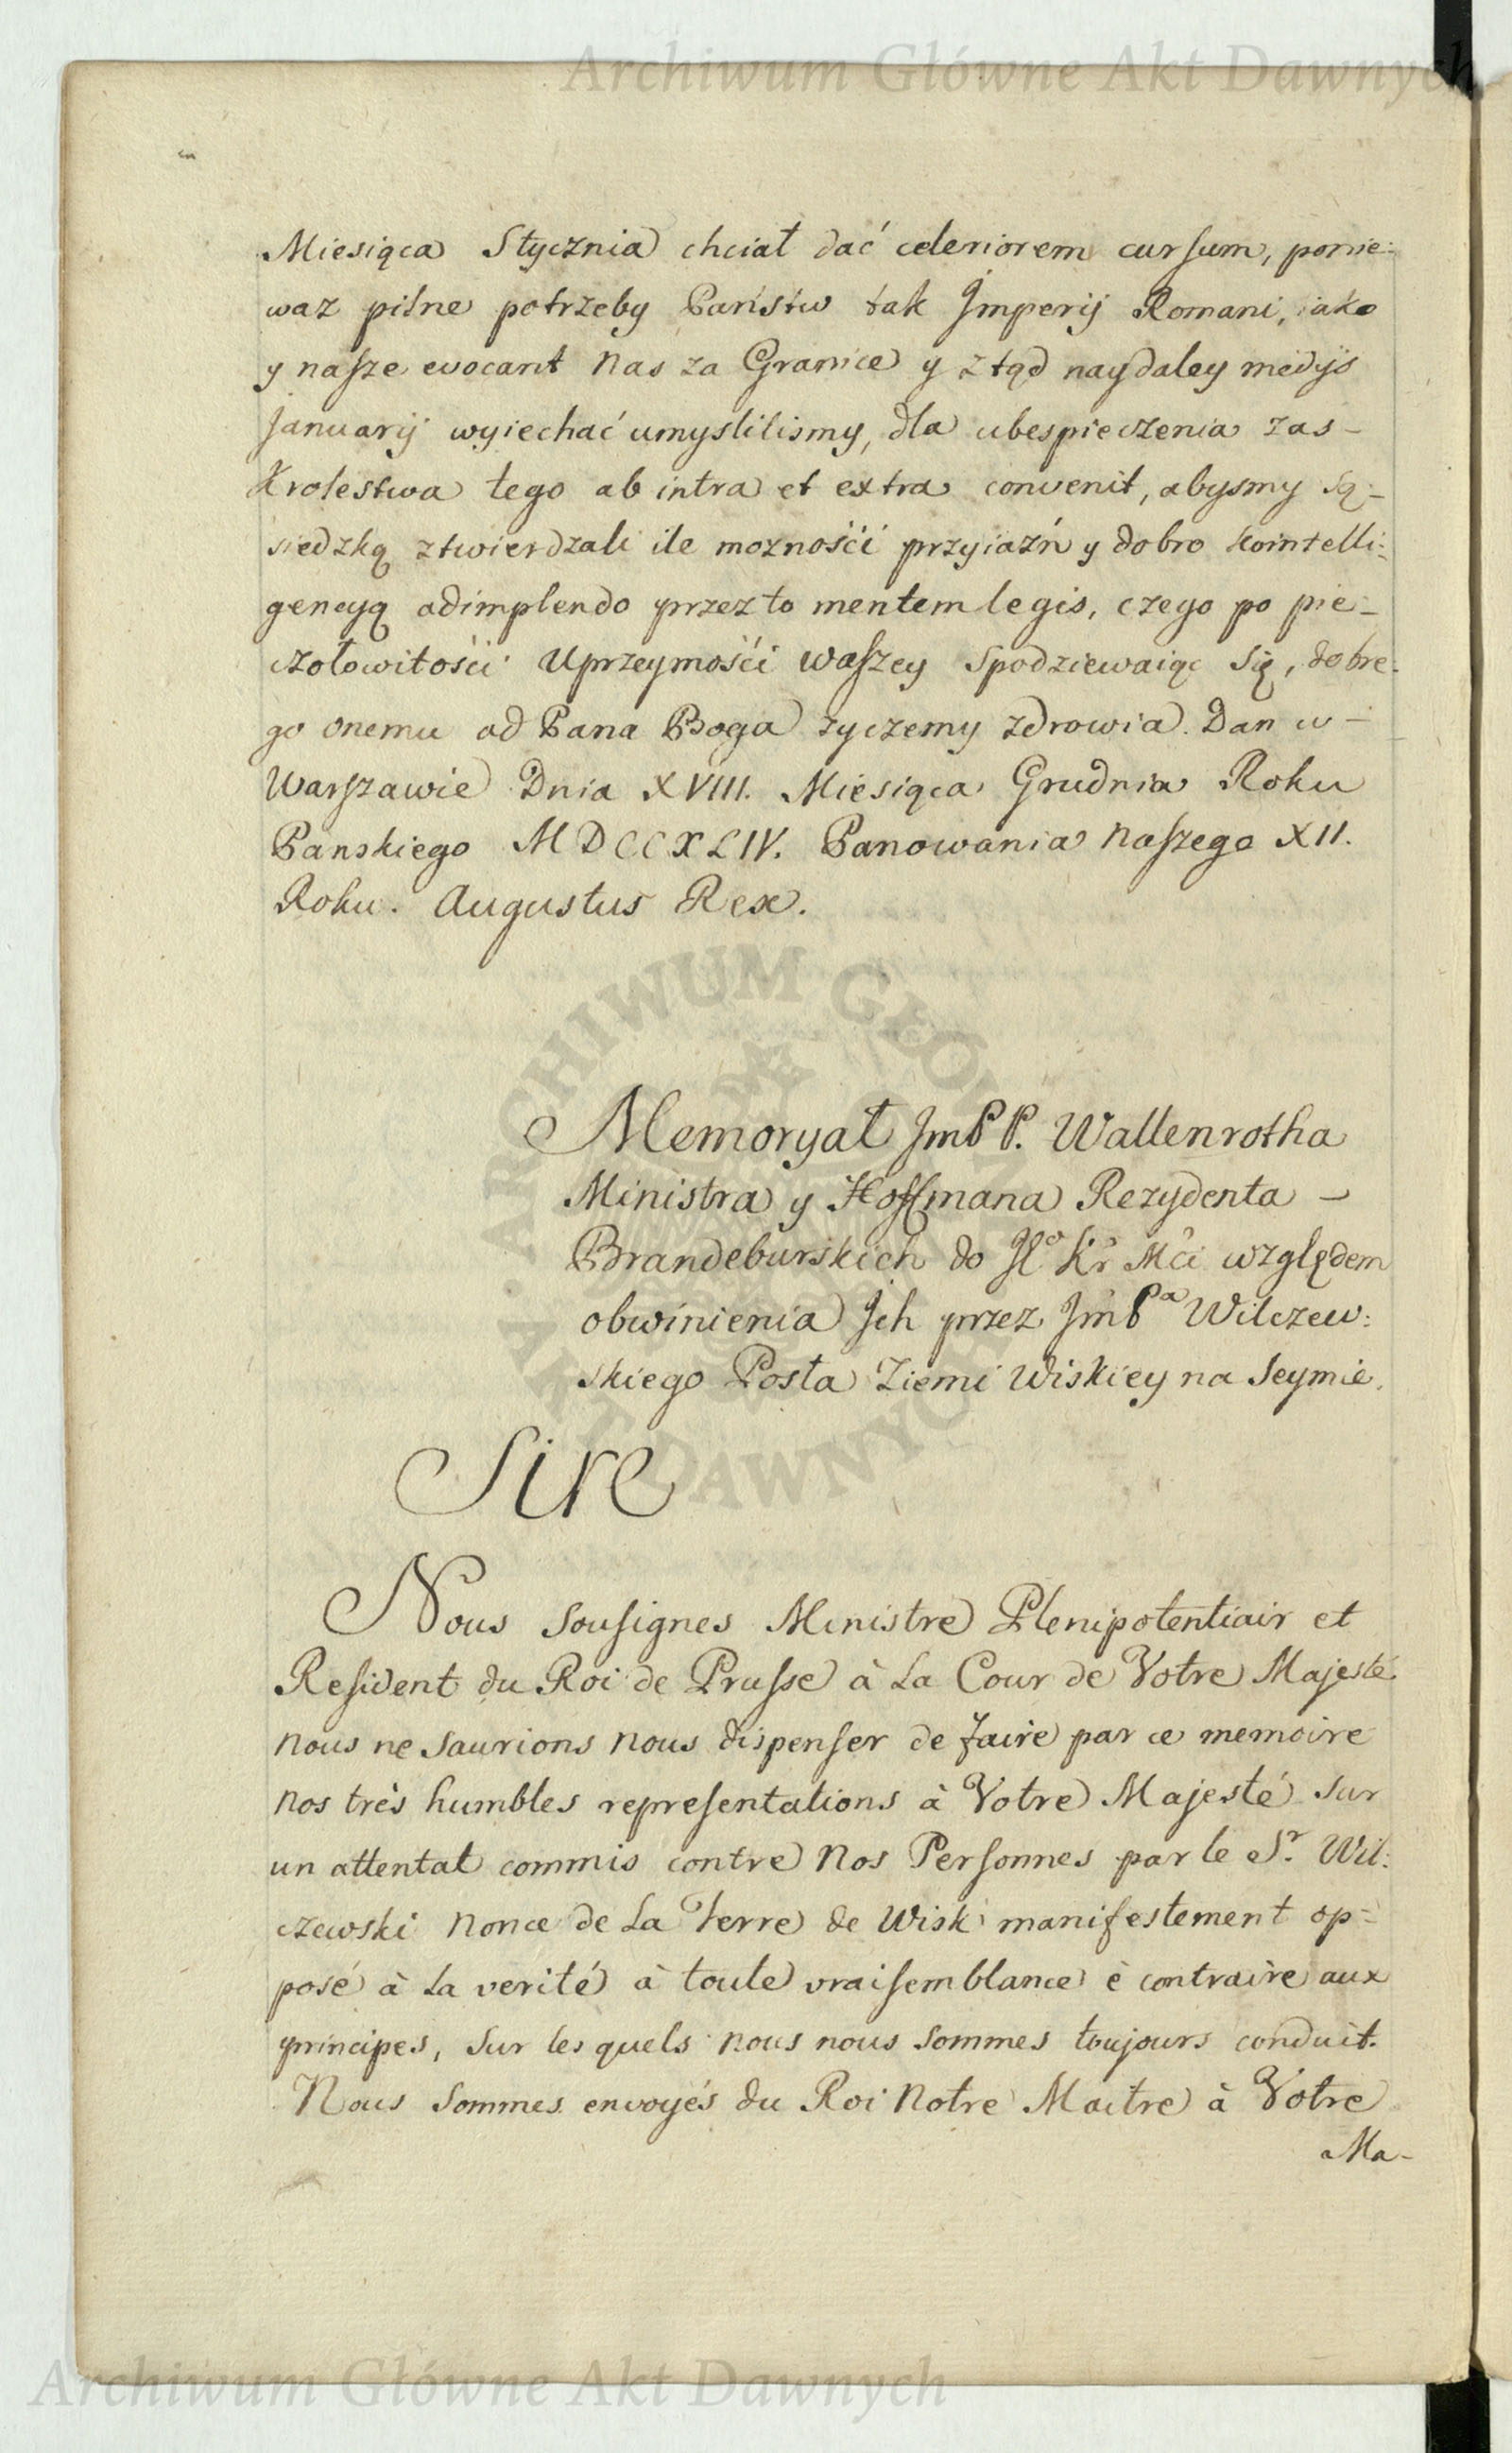 Archiwum Główne Akt Dawnych
Miesiąca Stycznia chciał dać celeriorem cursum, ponie-
waz pilne potrzeby Państw tak Imperij Romani, iako
y nasze evocant nas za Granice y ztąd naydaley medijs
Januarij wyiechać umyslilismy, dla ubespieczenia zas-
Krolestwa tego ab intra et extra convenit, abysmy są-
siedzką ztwierdzali ile moznośći przyiaźń y dobro kointelli-
gencyą adimplendo przez to mentem legis, czego po pie-
czołowitośći Uprzeymośći waszey spodziewaiąc się, dobre-
go onemu od Pana Boga zyczemy zdrowia. Dan w-
Warszawie Dnia XVIII. Miesiąca Grudnia Roku
Panskiego MDCCXLIV. Panowania naszego XII.
Roku. Augustus Rex.
ARCHIWUM GŁÓWNE AKT DAWNYCH
Memoryał JmPP. Wallenrotha
Ministra y Hoffmana Rezydenta -
Brandeburskich do Jo Kr Mci względem
obwinienia Ich przez JmPa Wilczew:
skiego Posła Ziemi Wiskiey na Seymie.
Sire
Nous sousignes Ministre Plenipotentiair et
Resident du Roi de Prusse à la Cour de Votre Majesté
nous ne saurions nous dispenser de faire par ce memoire
nos très humbles representations à Votre Majesté sur
un attentat commis contre nos Personnes par le Sr. Wil:
czewski nonce de la Terre de Wisk manifestement op-
posé à la verité à toute vraisemblance è contraire aux
principes, sur les quels nous nous sommes toujours conduit.
Nous sommes envoyés du Roi notre Maitre à Votre
Ma-
Archiwum Główne Akt Dawnych